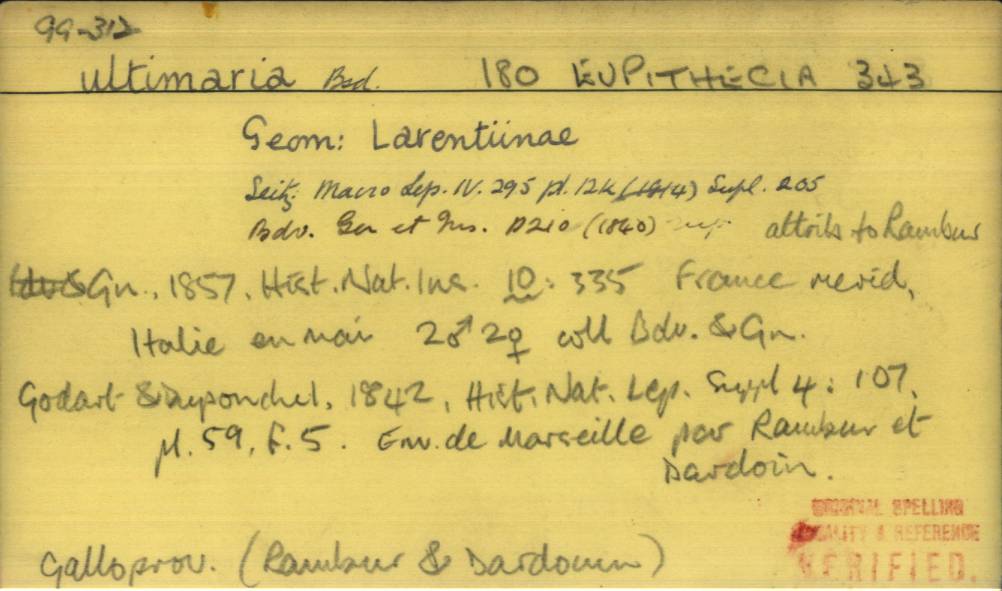 99-312
ultimaria Bsd. 180 EUPITHECIA 343
Geom: Larentiinae
Seitz. Macro Lep. IV. 295 pl. 12k (1914) Supl. 205
Bdv. Gen et Ins. p210 (1840) attrib to Rambur
Bdv & Gn., 1857, Hist. Nat. Ins. 10: 335 France merid,
Italie en mai 2♂ 2♀ coll Bdv. & Gn.
Godart & Duponchel, 1842, Hist. Nat. Lep. Suppl 4: 107,
pl. 59, f. 5. Env. de Marseille par Rambur et
Dardoin.
ORIGINAL SPELLING
LOCALITY & REFERENCE
VERIFIED.
Galloprov. (Rambur & Dardouin)